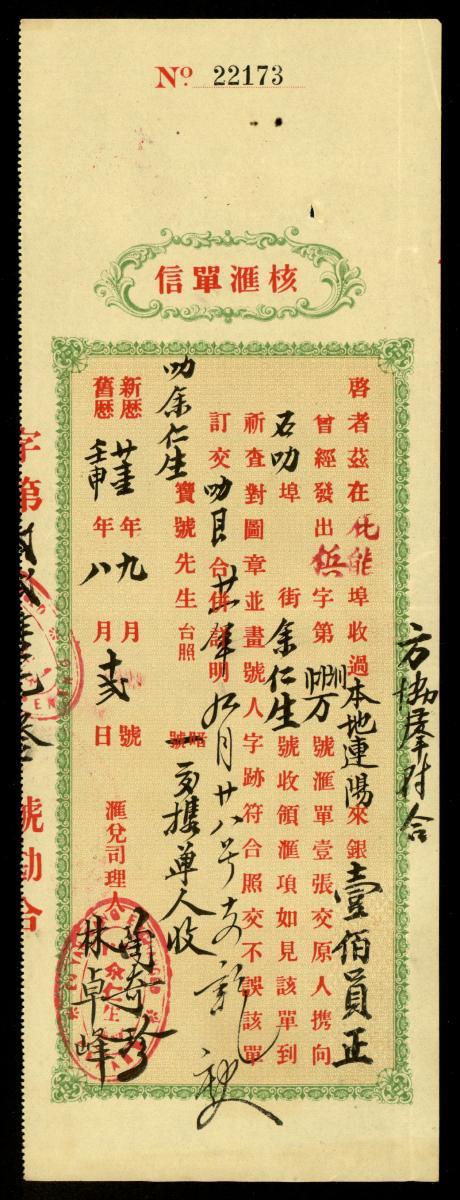 No. 22173
核滙單信
方協羣付合
啓者茲在 埠收過本地連陽來銀壹佰員正
曾經發出 字第 號滙單壹張交原人携向
石叻埠 街余仁生號收領滙項如見該單到
祈查對圖章並畫號人字跡符合照交不誤該單
訂交叻 合併註明 九月廿八号支
叻余仁生寶號先生台照 攜單人收
新歷 年九月 號
舊歷壬申年八月 日
滙兌司理人
林卓峰
奇珍
字第
號勘合